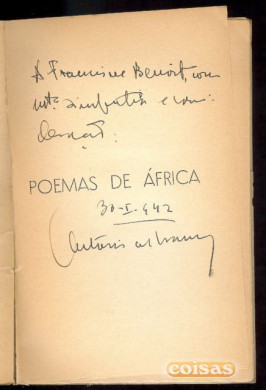 A Francine Benoit, com
mta simpatia e consi-
deração.
POEMAS DE ÁFRICA
30-I-942
António de
coisas